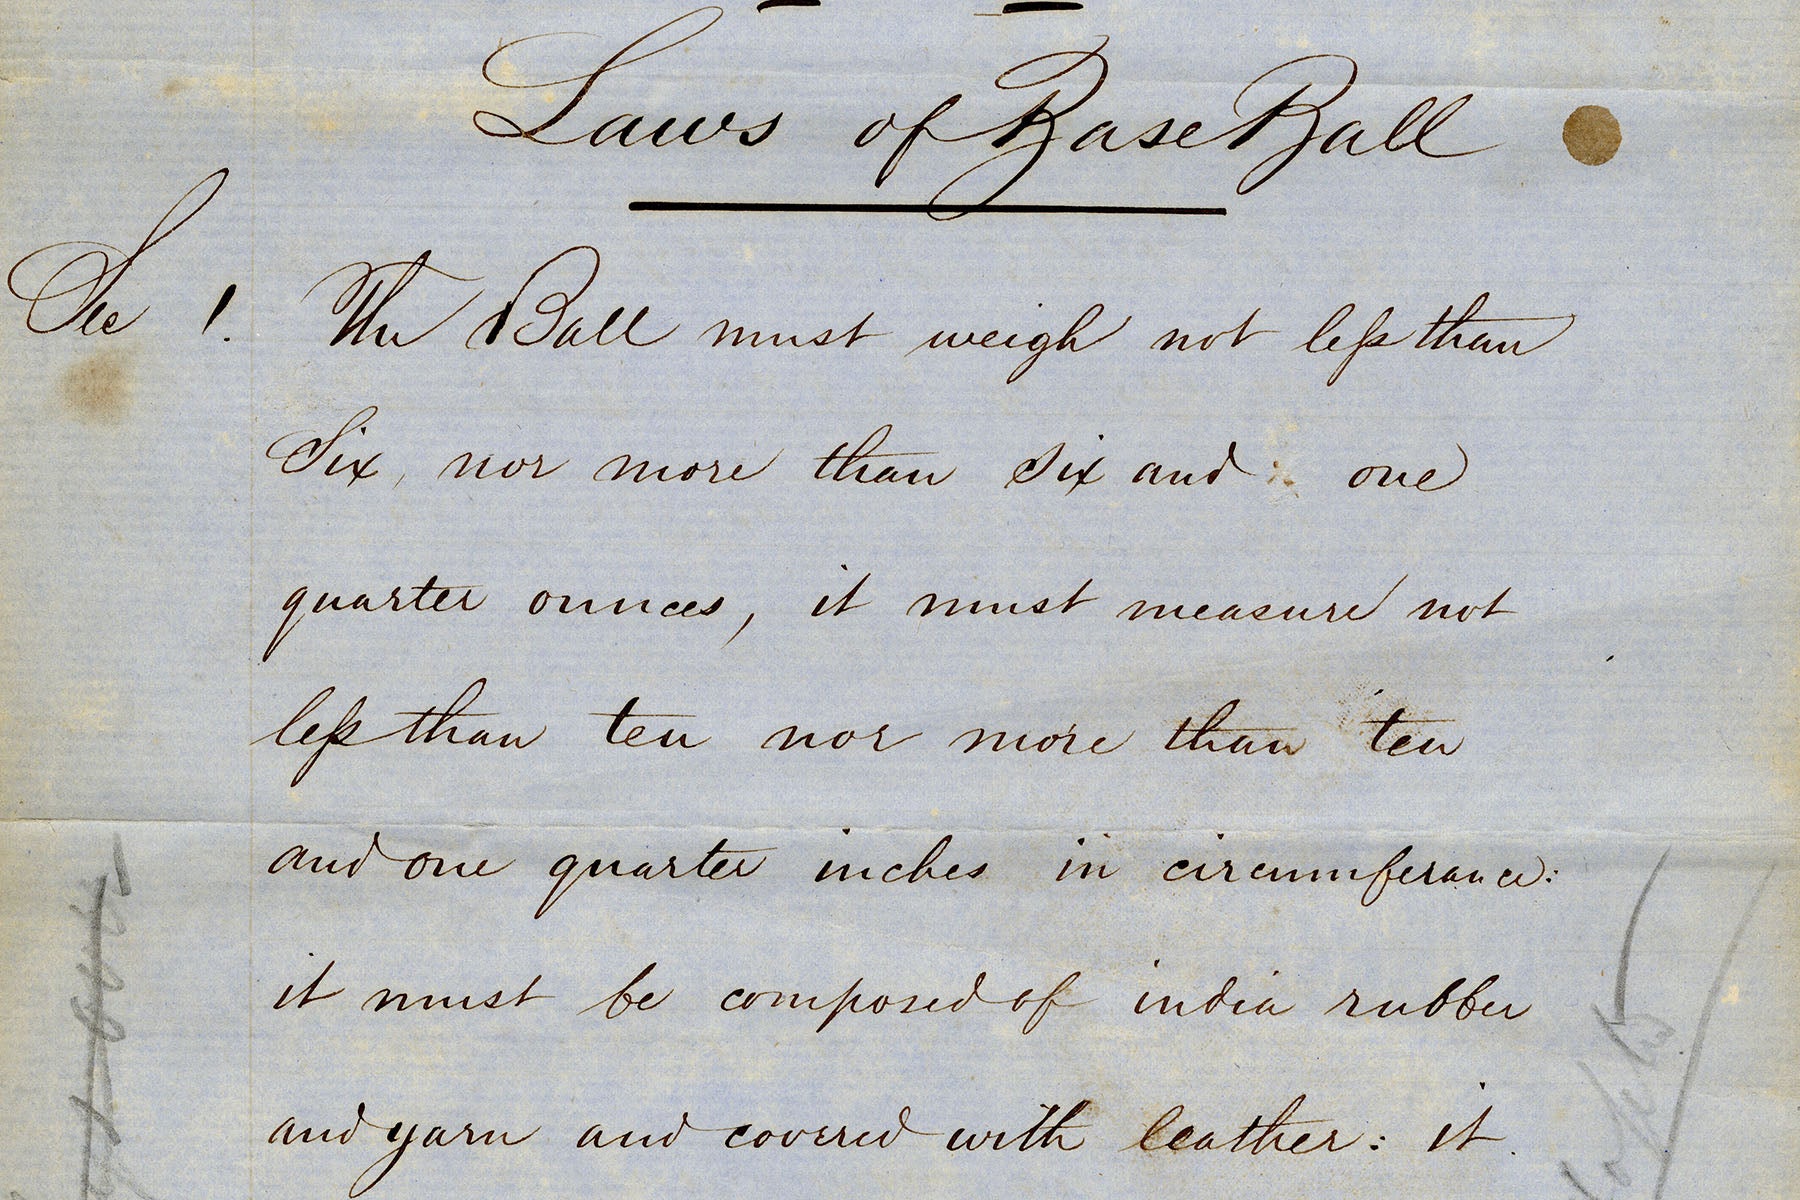 Laws of Base Ball
Sec 1. The Ball must weigh not less than
Six, nor more than Six and one
quarter ounces, it must measure not
less than ten nor more than ten
and one quarter inches in circumferance:
it must be composed of india rubber
and yarn and covered with leather: it